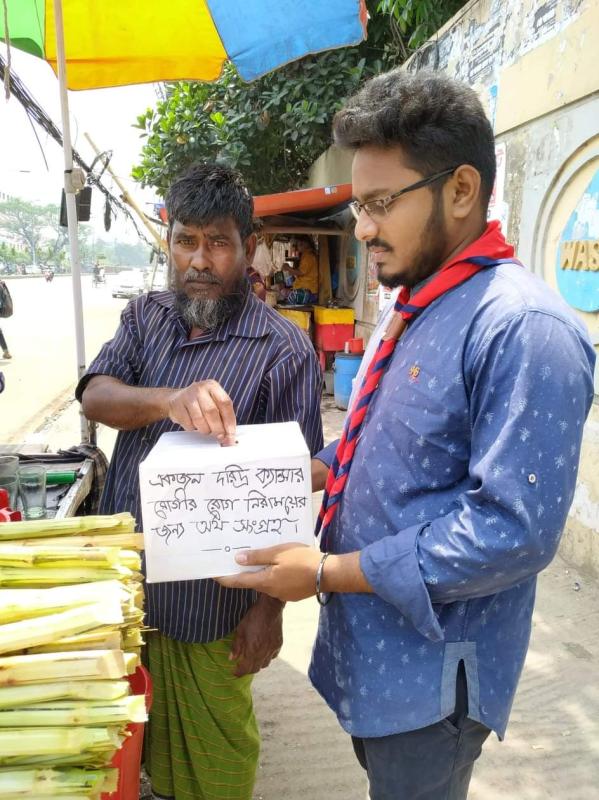 একজন দরিদ্র ক্যান্সার
রোগীর রোগ নিরাময়ের
জন্য অর্থ সংগ্রহ।
WAS